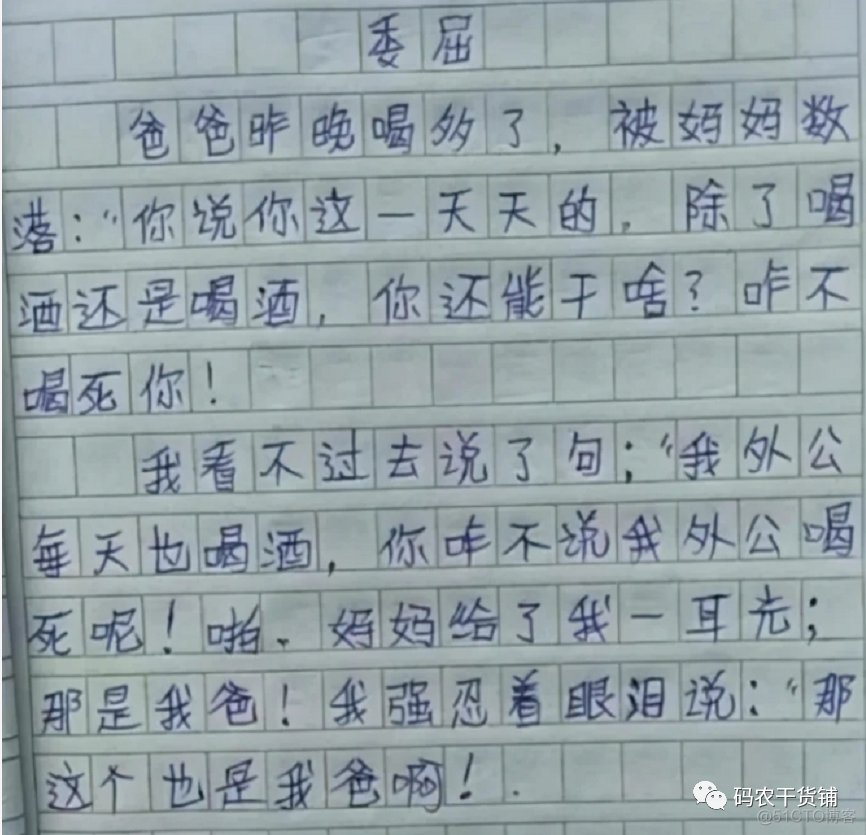 委屈
爸爸昨晚喝多了，被妈妈数
落："你说你这一天天的，除了喝
酒还是喝酒，你还能干啥？咋不
喝死你！
我看不过去说了句；"我外公
每天也喝酒，你咋不说我外公喝
死呢！啪、妈妈给了我一耳光；
那是我爸！我强忍着眼泪说："那
这个也是我爸啊！.
码农干货铺
@51CTO博客